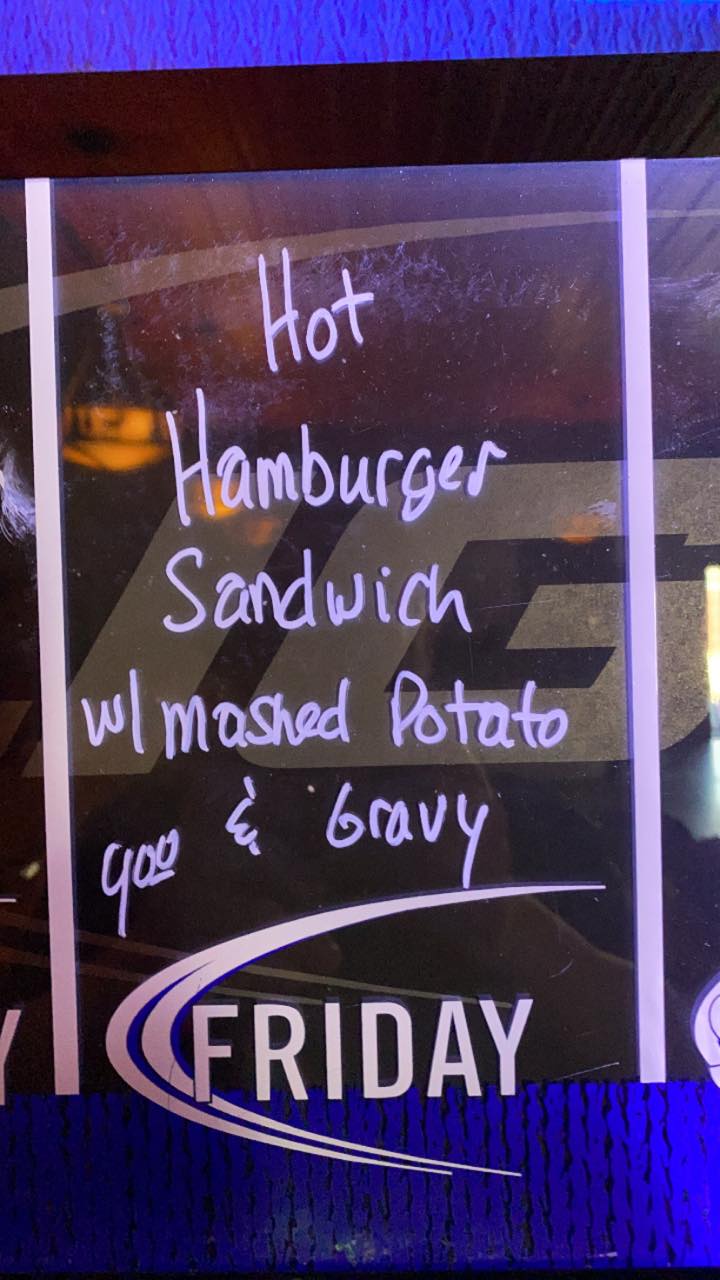 Hot
Hamburger
Sandwich
w/ mashed Potato
& Gravy
900
FRIDAY